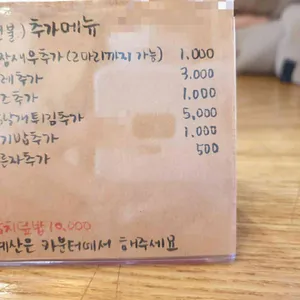 선불) 추가메뉴
장새우추가 (2마리까지 가능) 1,000
레추가 3,000
즈추가 1,000
조개튀김추가 5,000
기밥추가 1,000
른자추가 500
10,000
계산은 카운터에서 해주세요